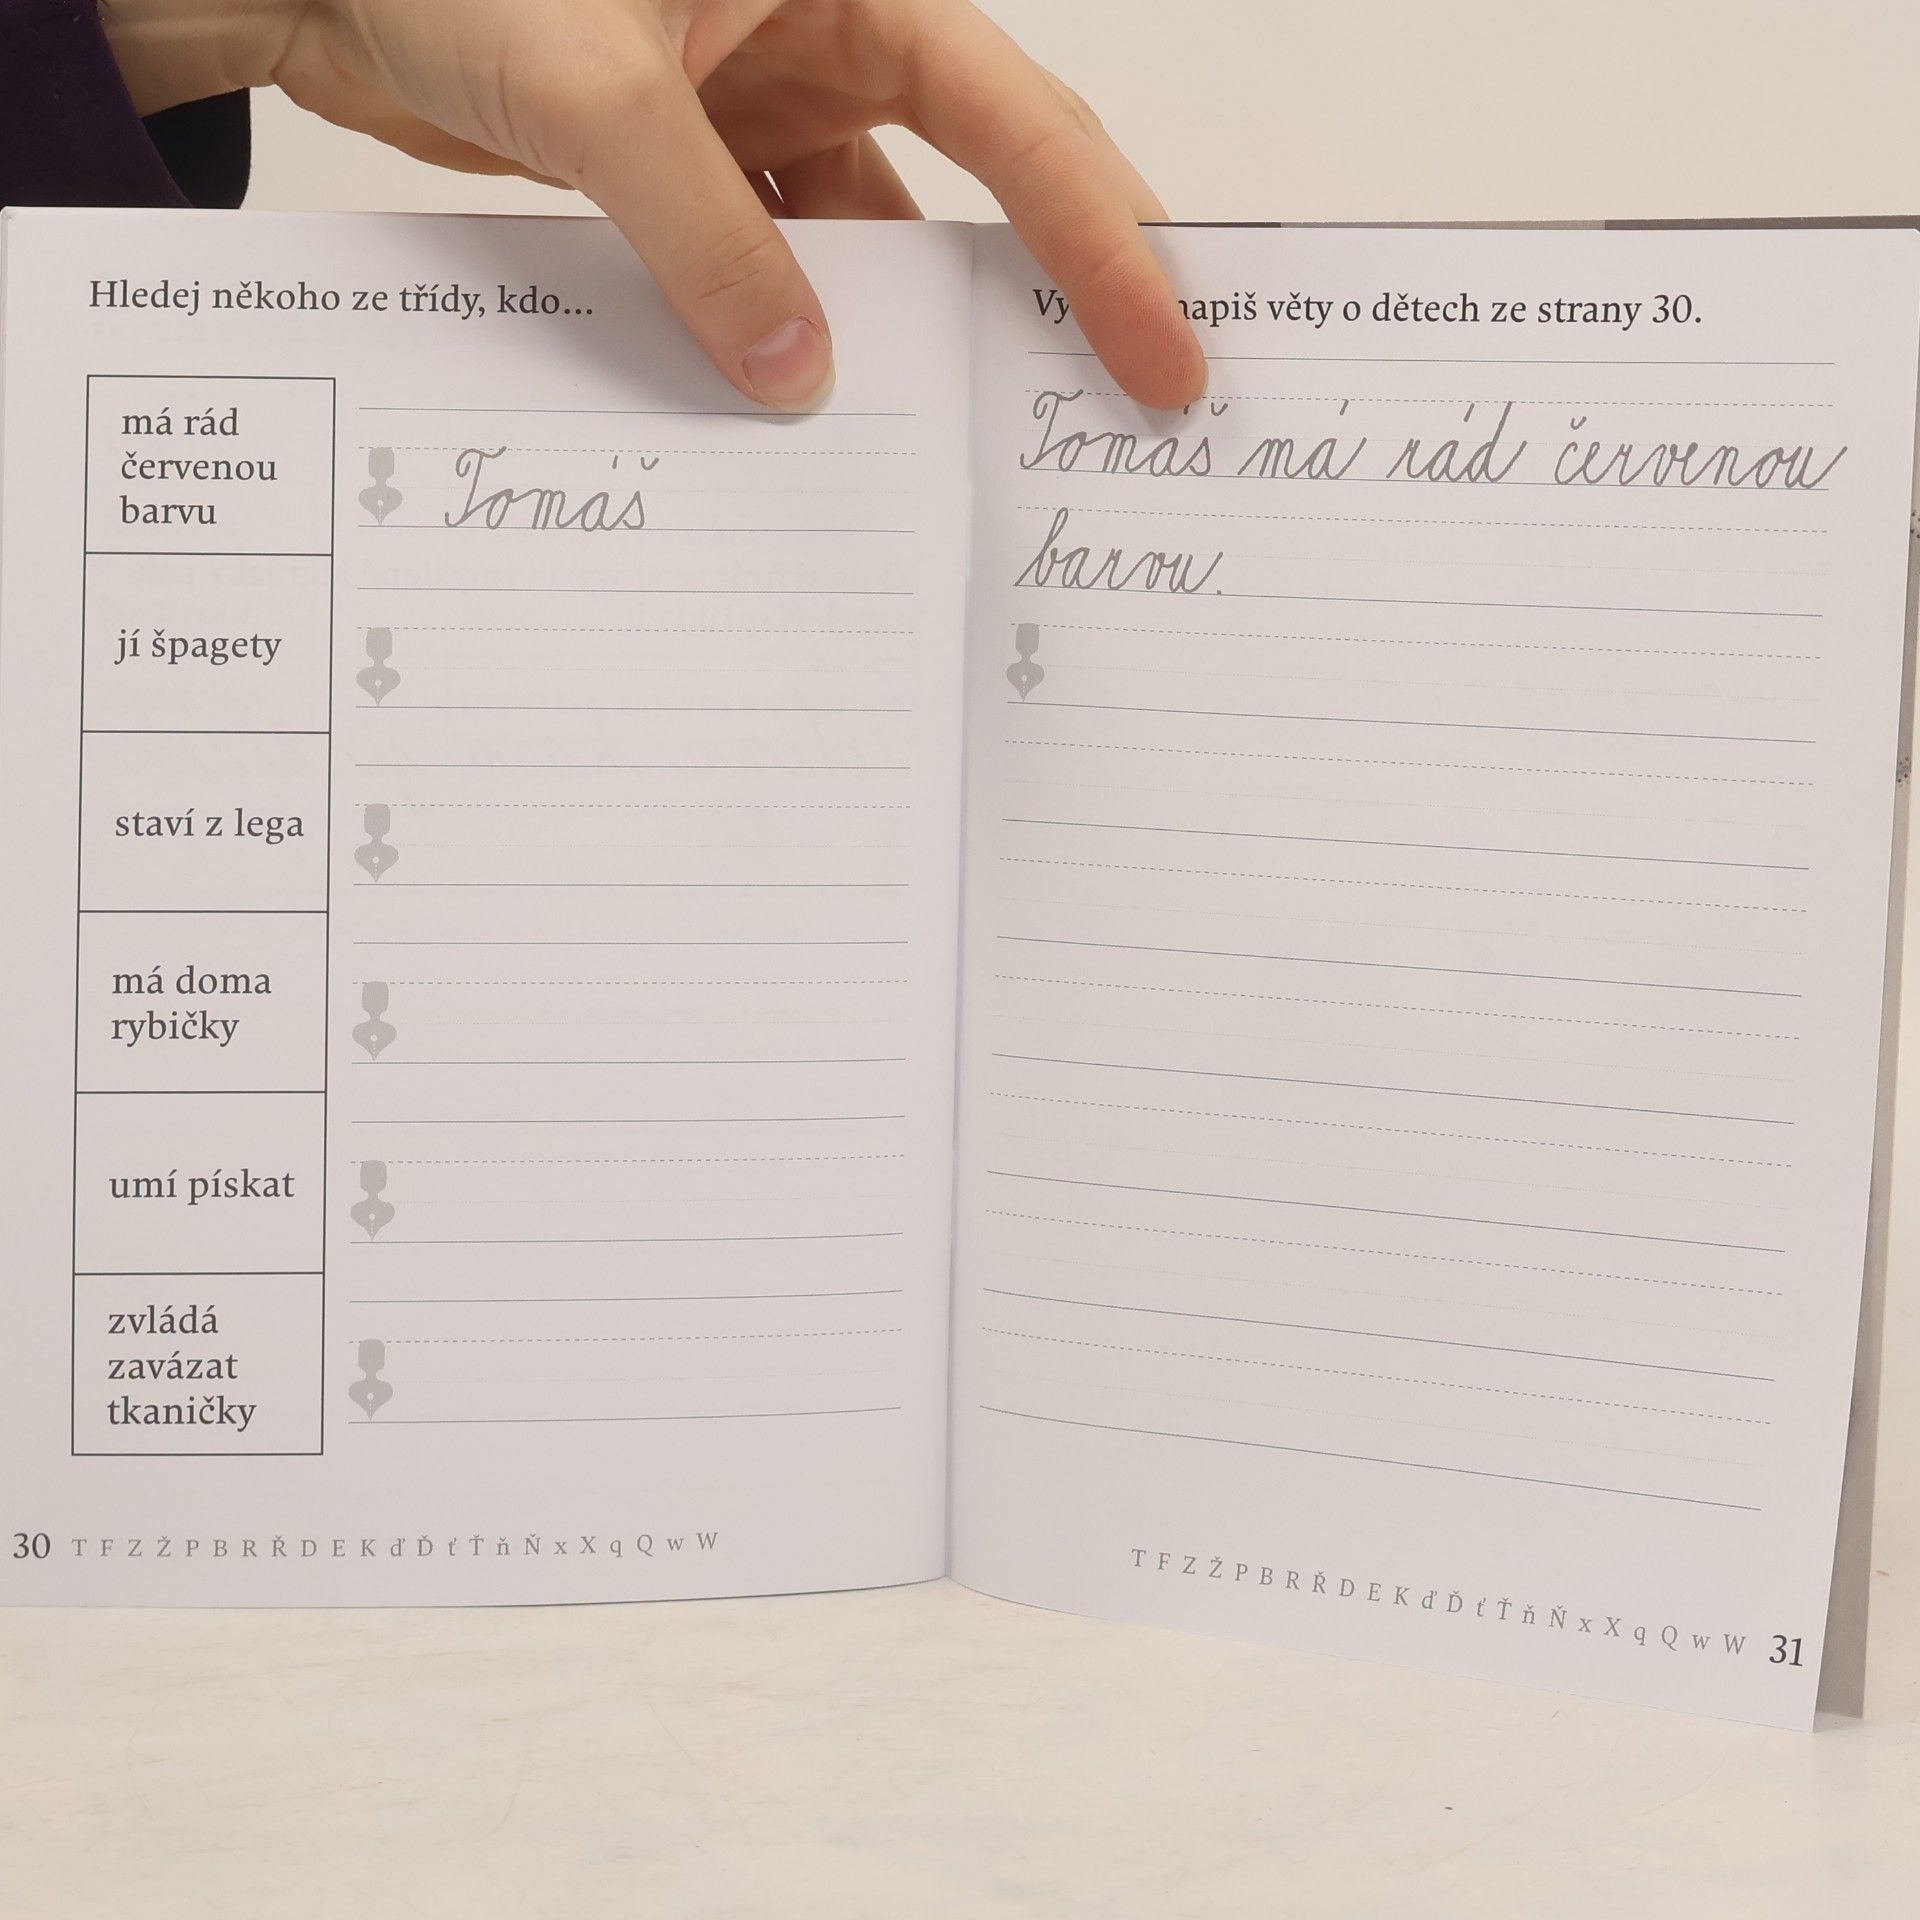 Hledej někoho ze třídy, kdo...
má rád
červenou
barvu
Tomáš
jí špagety
staví z lega
má doma
rybičky
umí pískat
zvládá
zavázat
tkaničky
30 T F Z Ž P B R Ř D E K ď Ď ť Ť ň Ň x X q Q w W
věty o dětech ze strany 30.
Tomáš má rád červenou
barvu.
T F Z Ž P B R Ř D E K ď Ď ť Ť ň Ň x X q Q w W 31